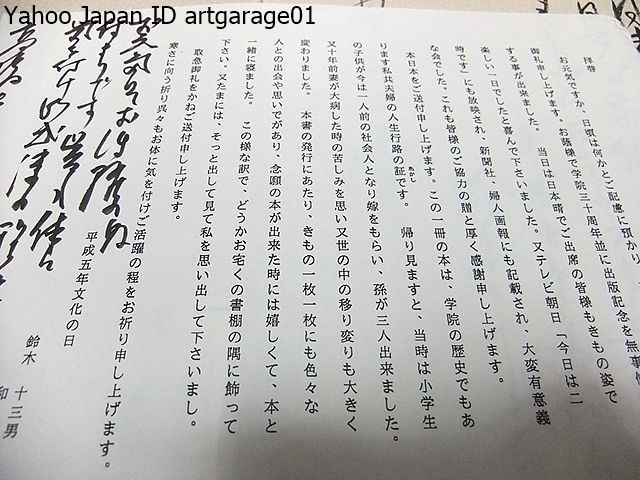 Yahoo Japan ID artgarage01
拝啓
お元気ですか、日頃は何かとご配慮に預かり
お蔭様で学院三十周年並に出版記念を無事
御礼申し上げます。
する事が出来ました。 当日は日本晴でご出席の皆様もきもの姿で
楽しい一日でしたと喜んで下さいました。又テレビ朝日「今日は二
時です」にも放映され、新聞社、婦人画報にも記載され、大変有意義
な会でした。これも皆様のご協力の贈と厚く感謝申し上げます。
本日本をご送付申し上げます。この一冊の本は、学院の歴史でもあ
ります私共夫婦の人生行路の証です。 帰り見ますと、当時は小学生
あかし
の子供が今は一人前の社会人となり嫁をもらい、孫が三人出来ました。
又十年前妻が大病した時の苦しみを思い又世の中の移り変りも大きく
変わりました。 本書の発行にあたり、きもの一枚一枚にも色々な
人との出会や思いでがあり、念願の本が出来た時には嬉しくて、本と
一緒に寝ました。 この様な訳で、どうかお宅くの書棚の隅に飾って
下さい。又たまには、そっと出して見て私を思い出して下さいまし。
取急御礼をかねご送付申し上げます。
寒さに向う折り呉々もお体に気を付けご活躍の程をお祈り申し上げます。
平成五年文化の日
鈴木 十三男
和